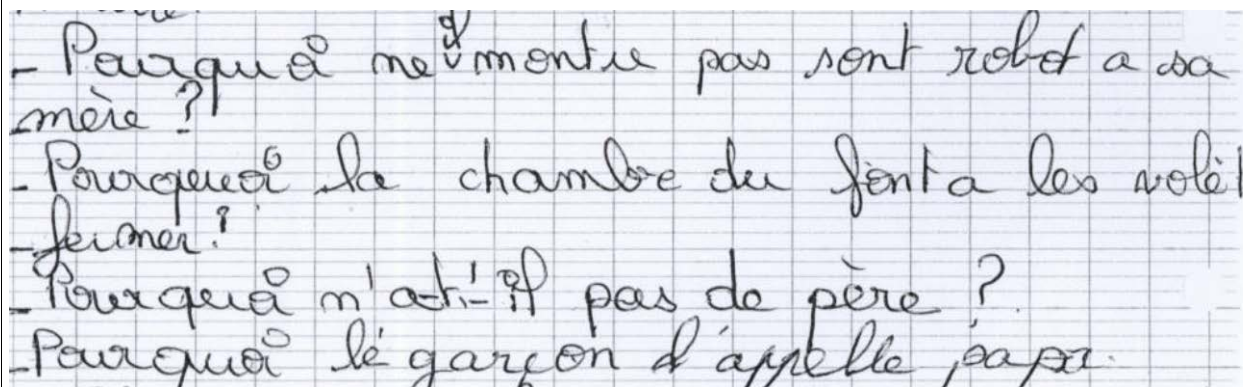 - Pourquoi ne montre pas sont robot a sa
mère ?
- Pourquoi la chambre du font a les volèt
- fermer ?
- Pourquoi n'a-t-il pas de père ?
- Pourquoi lé garçon d'appelle papa.